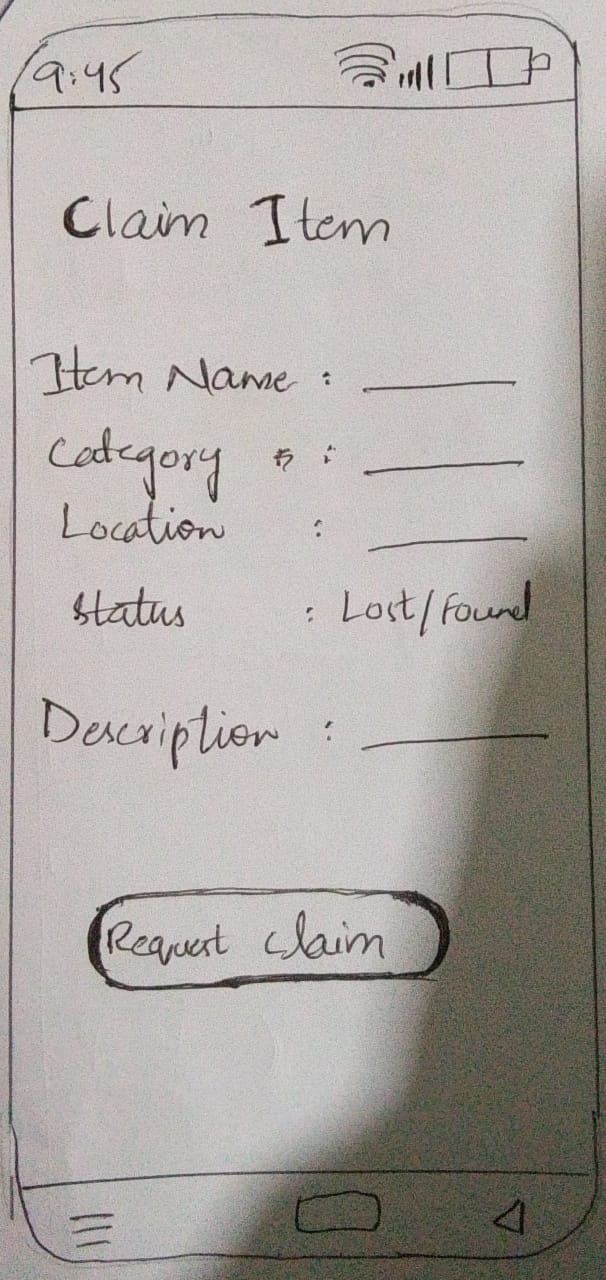 9:45
Claim Item
Item Name : ________
Category : ________
Location : ________
Status : Lost/Found
Description : ________
Request Claim